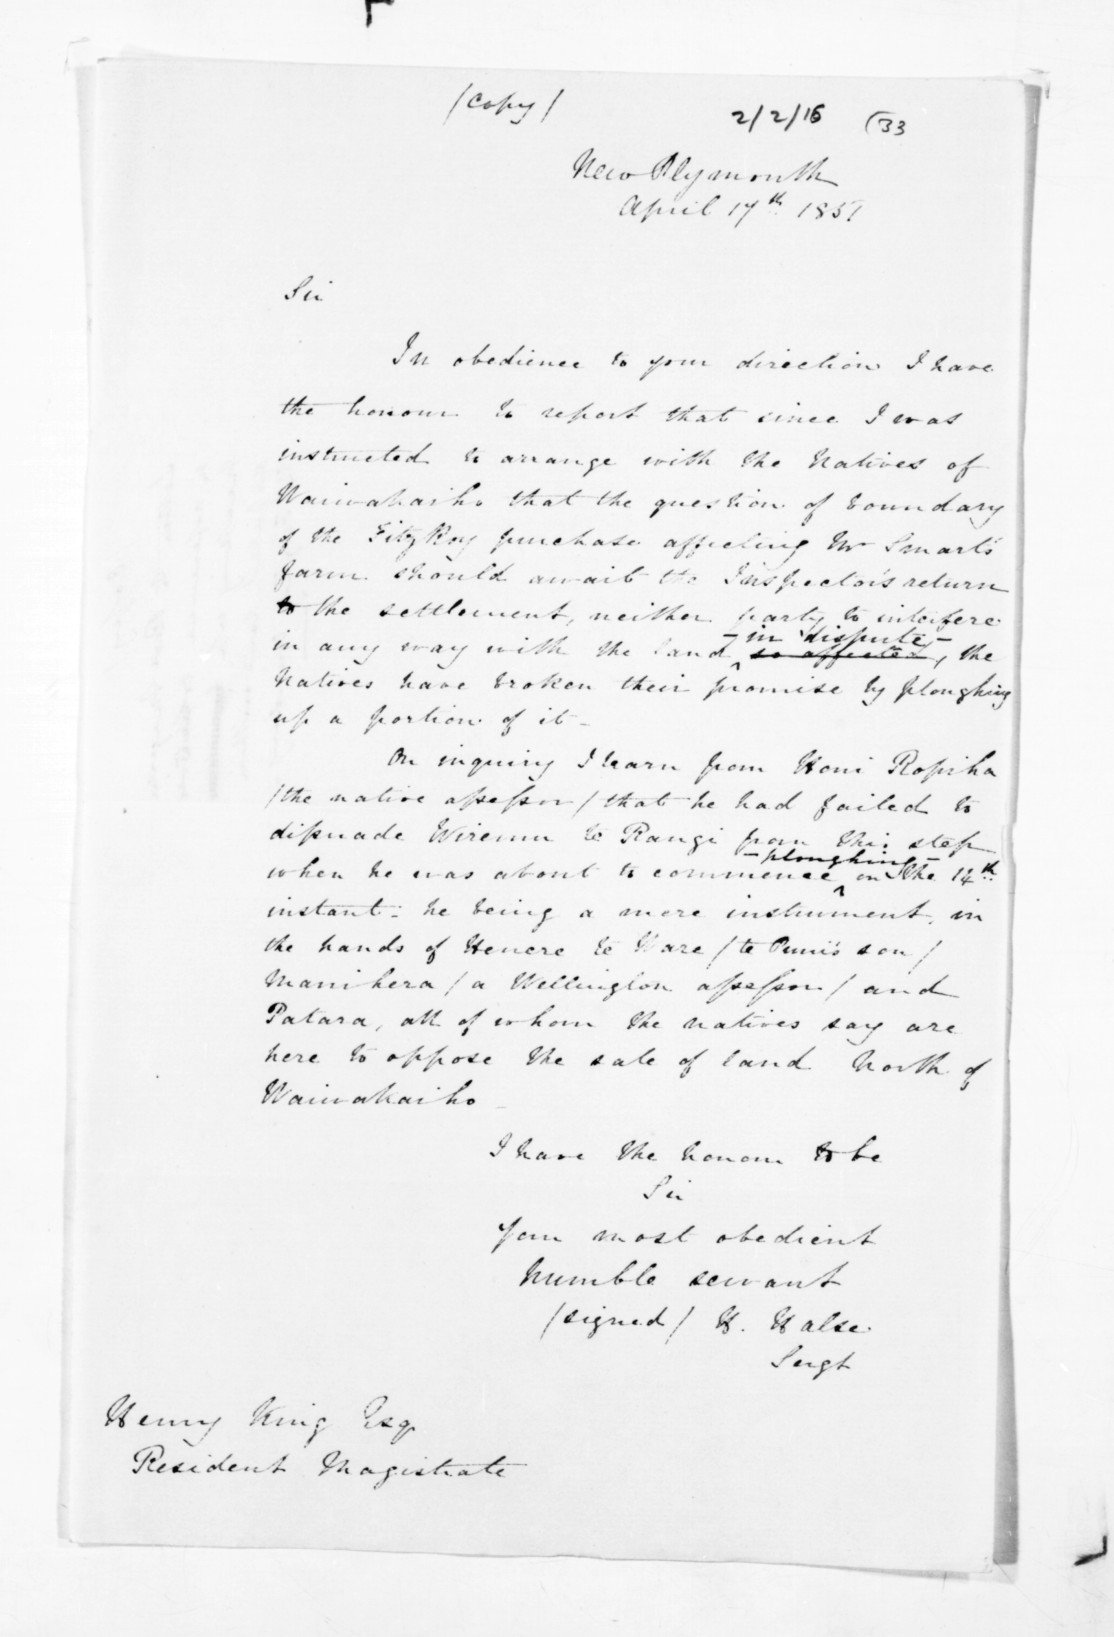 /Copy/
2/2/16 (33
New Plymouth
April 17th 1851
Sir
In obedience to your direction I have
the honour to report that since I was
instructed to arrange with the Natives of
Waiwakaiho that the question of boundary
of the FitzRoy purchase affecting Mr Smart's
farm should await the Inspector's return
to the settlement, neither party to interfere
in any way with the land in dispute so affected, the
Natives have broken their promise by ploughing
up a portion of it -
On inquiry I learn from Honi Ropiha
/the native assessor/ that he had failed to
dissuade Wiremu te Rangi from this step
when he was about to commence - ploughing - on the 14th
instant - he being a mere instrument, in
the hands of Henere te Ware /te Puni's son/
Manihera /a Wellington assessor/ and
Patara, all of whom the natives say are
here to oppose the sale of land North of
Waiwakaiho -
I have the honour to be
Sir
Your most obedient
humble servant
/signed/ H. Halse
Sergt
Henry King Esq
Resident Magistrate